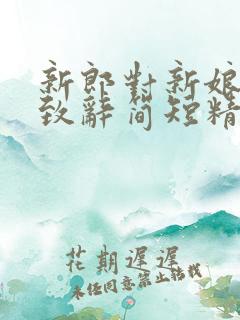 新郎對新娘
致辭簡短精
花期遲遲
未經同意禁止轉載